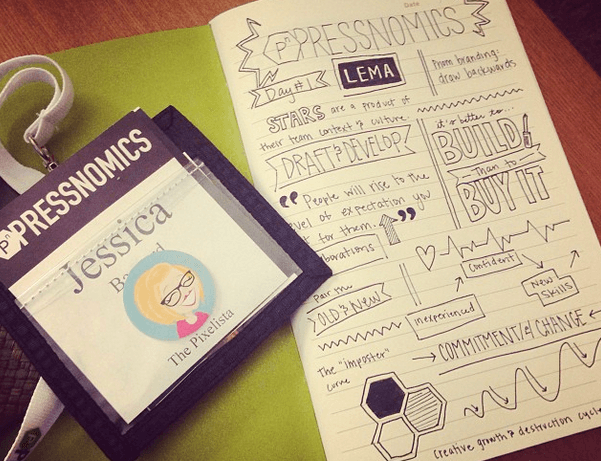 Pn PRESSNOMICS
Jessica
The Pixelista
Date
Pn PRESSNOMICS
Day #1
LEMA
STARS are a product of
their team context & culture.
DRAFT & DEVELOP
"People will rise to the
level of expectation you
for them."
Pair the
OLD & NEW
The "imposter"
curve
From branding:
draw backwards
it's better to...
BUILD
Than to
BUY IT
Confident
New
Skills
inexperienced
COMMITMENT / & CHANGE
Creative growth & destruction cycle